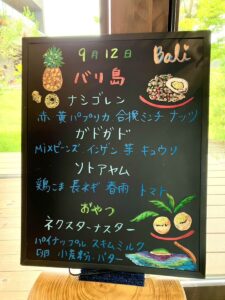 9月12日 Bali
バリ島
ナシゴレン
赤 黄パプリカ 合挽ミンチ ナッツ
ガドガド
Mixビーンズ インゲン 芋 キュウリ
ソトアヤム
鶏こま 長ネギ 春雨 トマト
おやつ
ネクスターナスター
パイナップル スキムミルク
卵 小麦粉 バター